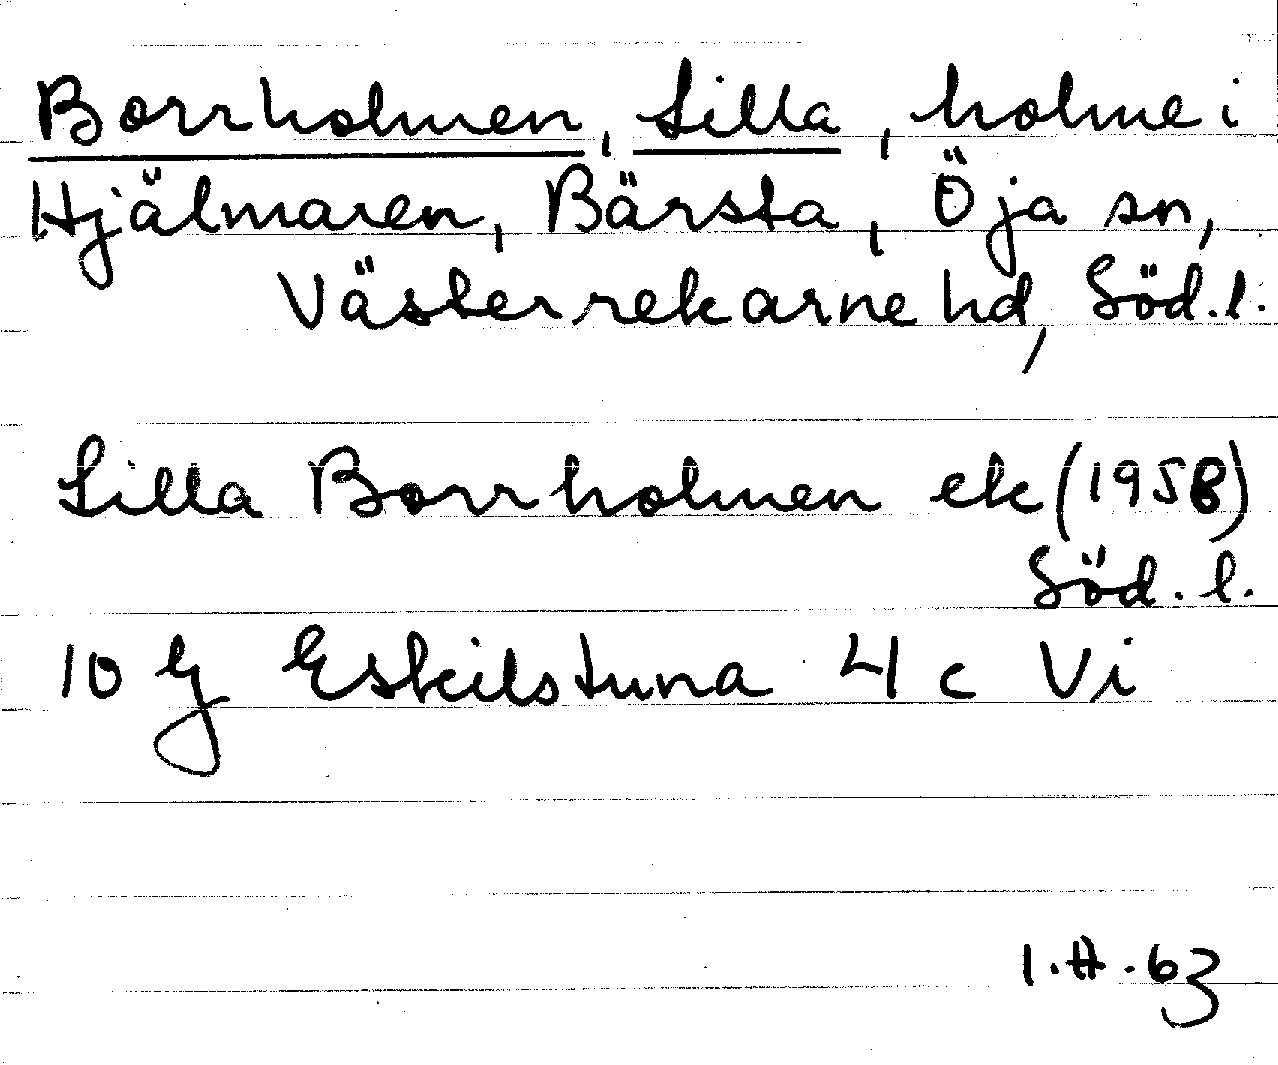 Borrholmen, Lilla, holme i
Hjälmaren, Bärsta, Öja sn,
Västerrekarne hd, Söd.l.
Lilla Borrholmen ek (1958)
Söd.l.
10 g Eskilstuna 4 c Vi
I.H.63